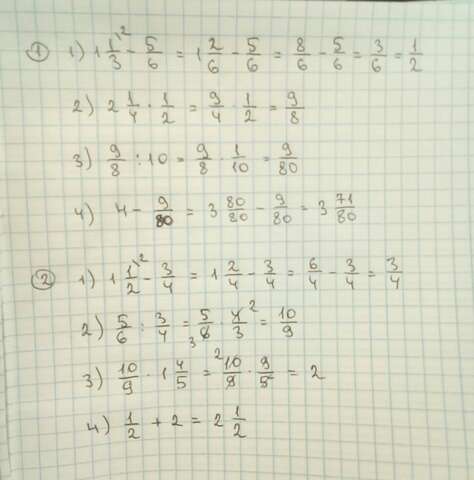 ① 1) 1 1/3 ² - 5/6 = 1 2/6 - 5/6 = 8/6 - 5/6 = 3/6 = 1/2
2) 2 1/4 · 1/2 = 9/4 · 1/2 = 9/8
3) 9/8 : 10 = 9/8 · 1/10 = 9/80
4) 4 - 9/80 = 3 80/80 - 9/80 = 3 71/80
② 1) 1 1/2 ² - 3/4 = 1 2/4 - 3/4 = 6/4 - 3/4 = 3/4
2) 5/6 : 3/4 = 5/6 ₃ · 4/3 ² = 10/9
3) 10/9 · 1 4/5 = ² 10/9 · 9/5 = 2
4) 1/2 + 2 = 2 1/2